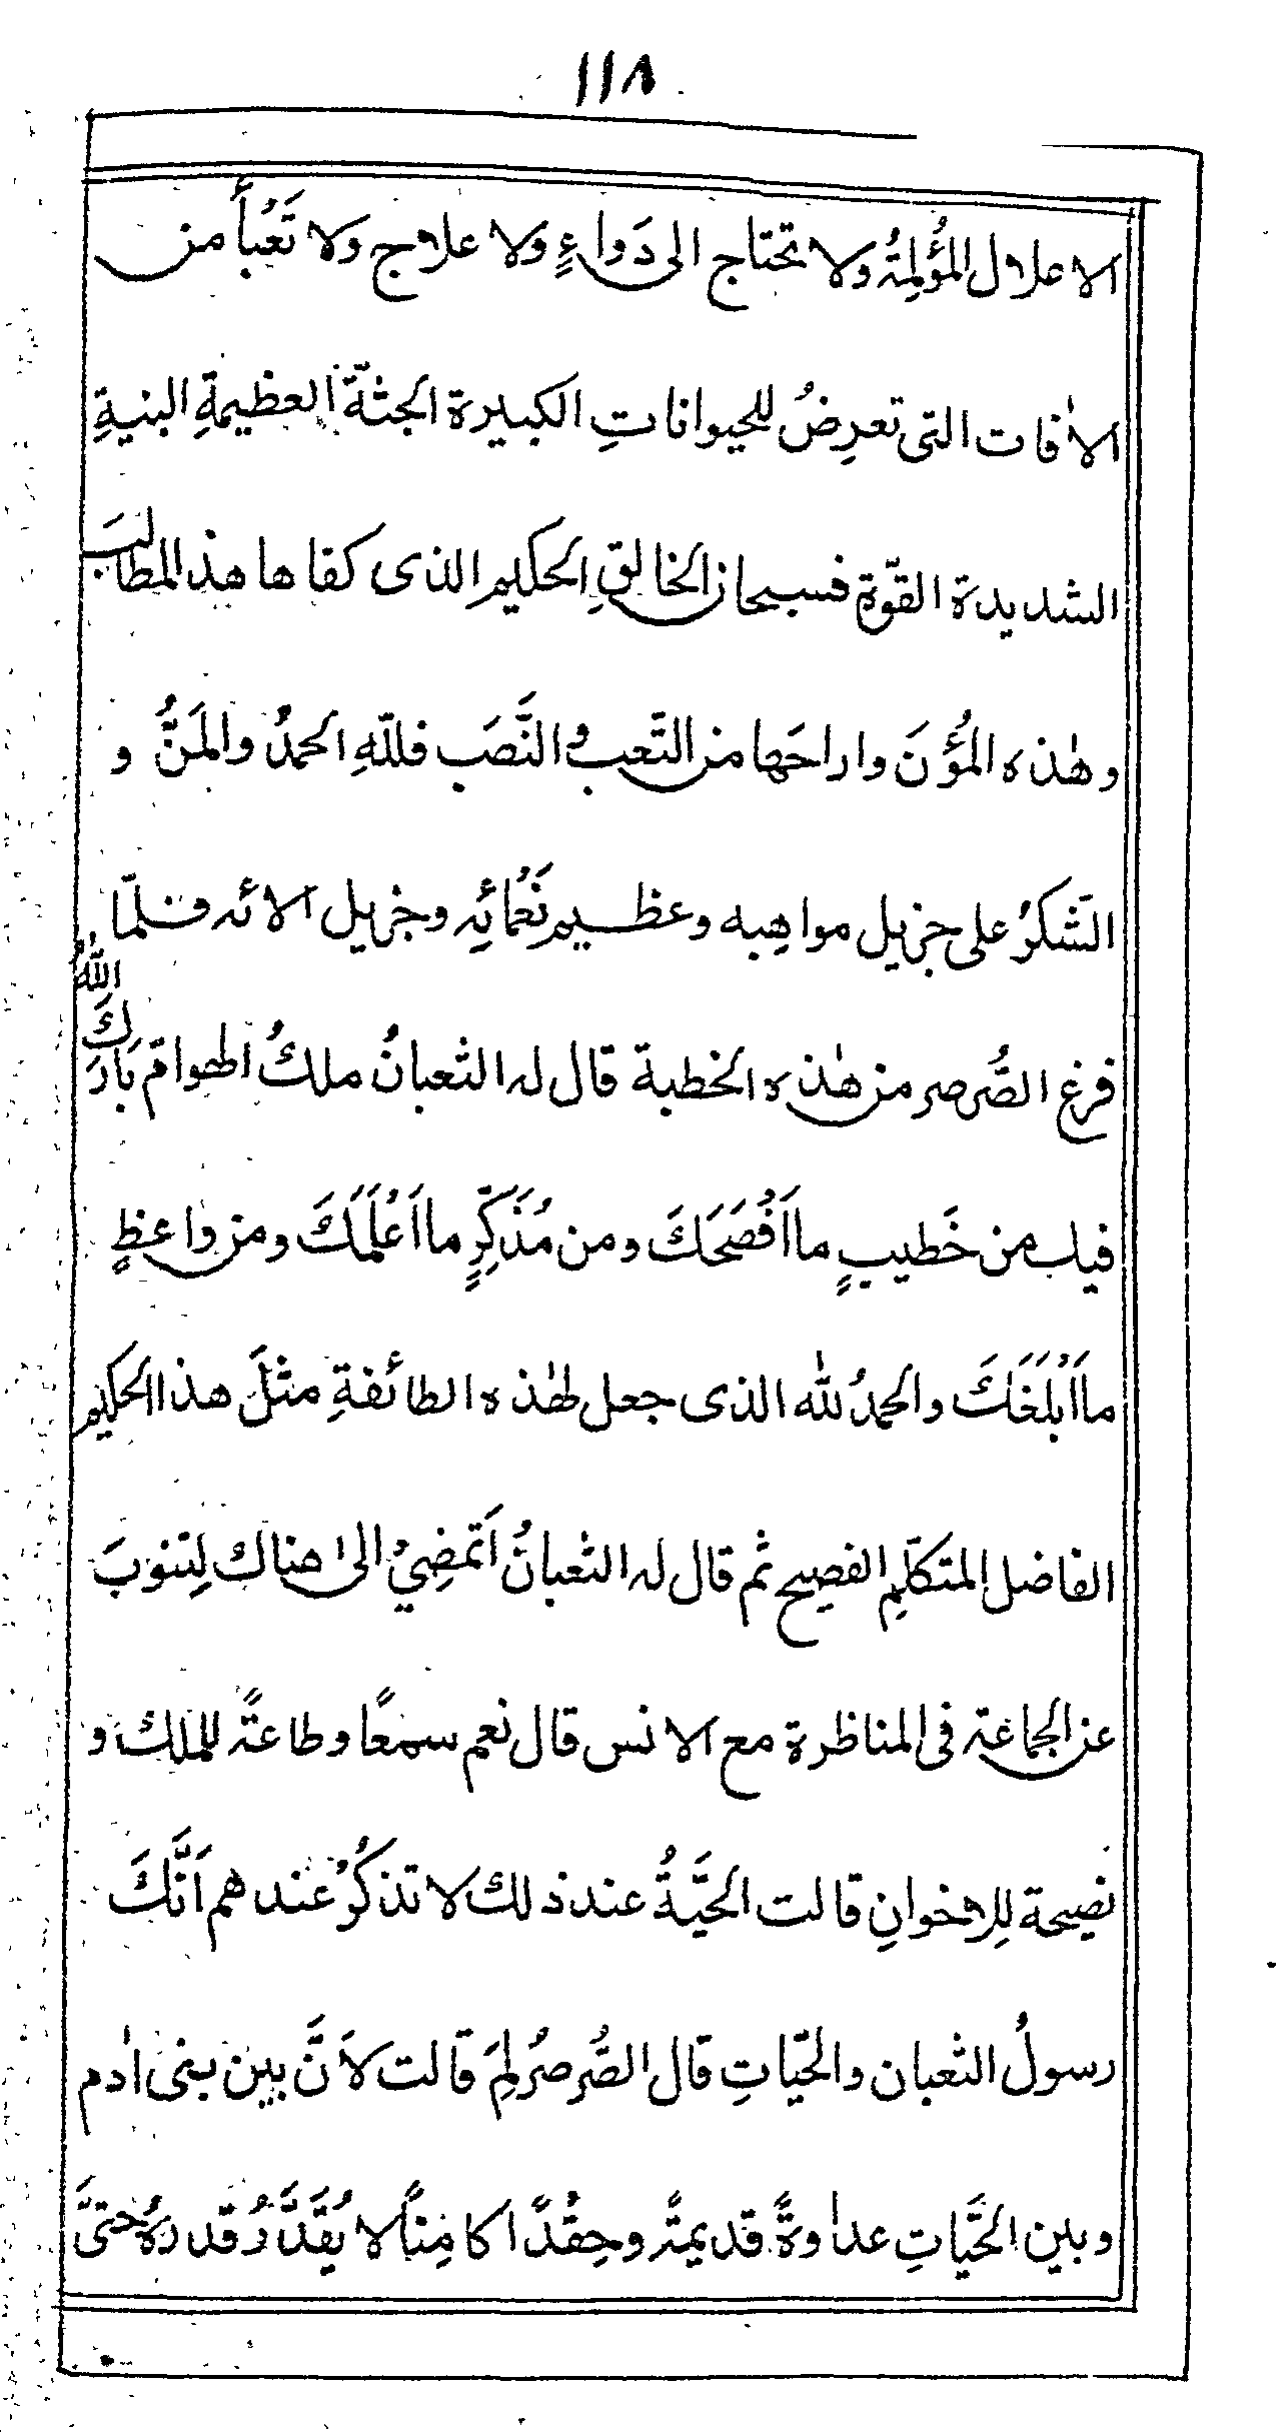 ١١٨
الاعلال المُؤلِمَةُ ولا تحتاج الى دَواءٍ ولا علاج ولا تَعْبأُ من
الاٰفات التى تعرِضُ للحيواناتِ الكبيرة الجثّة العظيمةِ البنيةِ
الشديدة القوّةِ فسبحان الخالقِ الحكيم الذى كفاها هذ المطالبَ
وهٰذه المُؤَنَ واراحَها من التَّعب والنَّصَب فللّهِ الحمدُ والمَنُّ و
الشَكرُ على جزيل مواهِبه وعظيم نَعْمائِه وجزيل الائه فلمّا
فرغ الصُّرصر من هٰذه الخطبة قال له الثعبانُ ملكُ الهوامّ بَارَكَ اللّٰهُ
فيك من خَطيبٍ ما اَفْصَحَكَ ومن مُذَكِّرٍ ما اَعْلَمَكَ ومن واعظٍ
ما اَبْلَغَكَ والحمدُ للّٰه الذى جعل لهٰذه الطائفةِ مثلَ هذا الحكيم
الفاضل المتكلّمِ الفصيح ثم قال له الثعبانُ اَتمضِيْ الى هناك لِتنوبَ
عن الجماعة فى المناظرة مع الانس قال نعم سمعًا وطاعةً للملك و
نصيحة لِلاخوانِ قالت الحيَّةُ عند ذلك لا تذكُرْ عندهم اَنَّكَ
رسولُ الثعبان والحيّاتِ قال الصُّرصرُ لِمَ قالت لاَنَّ بين بنى اٰدم
وبين الحَيَّاتِ عداوةً قديمةً وحِقْدًا كامِناً لا يُقَدَّرُ قدرُهُ حتىَّ